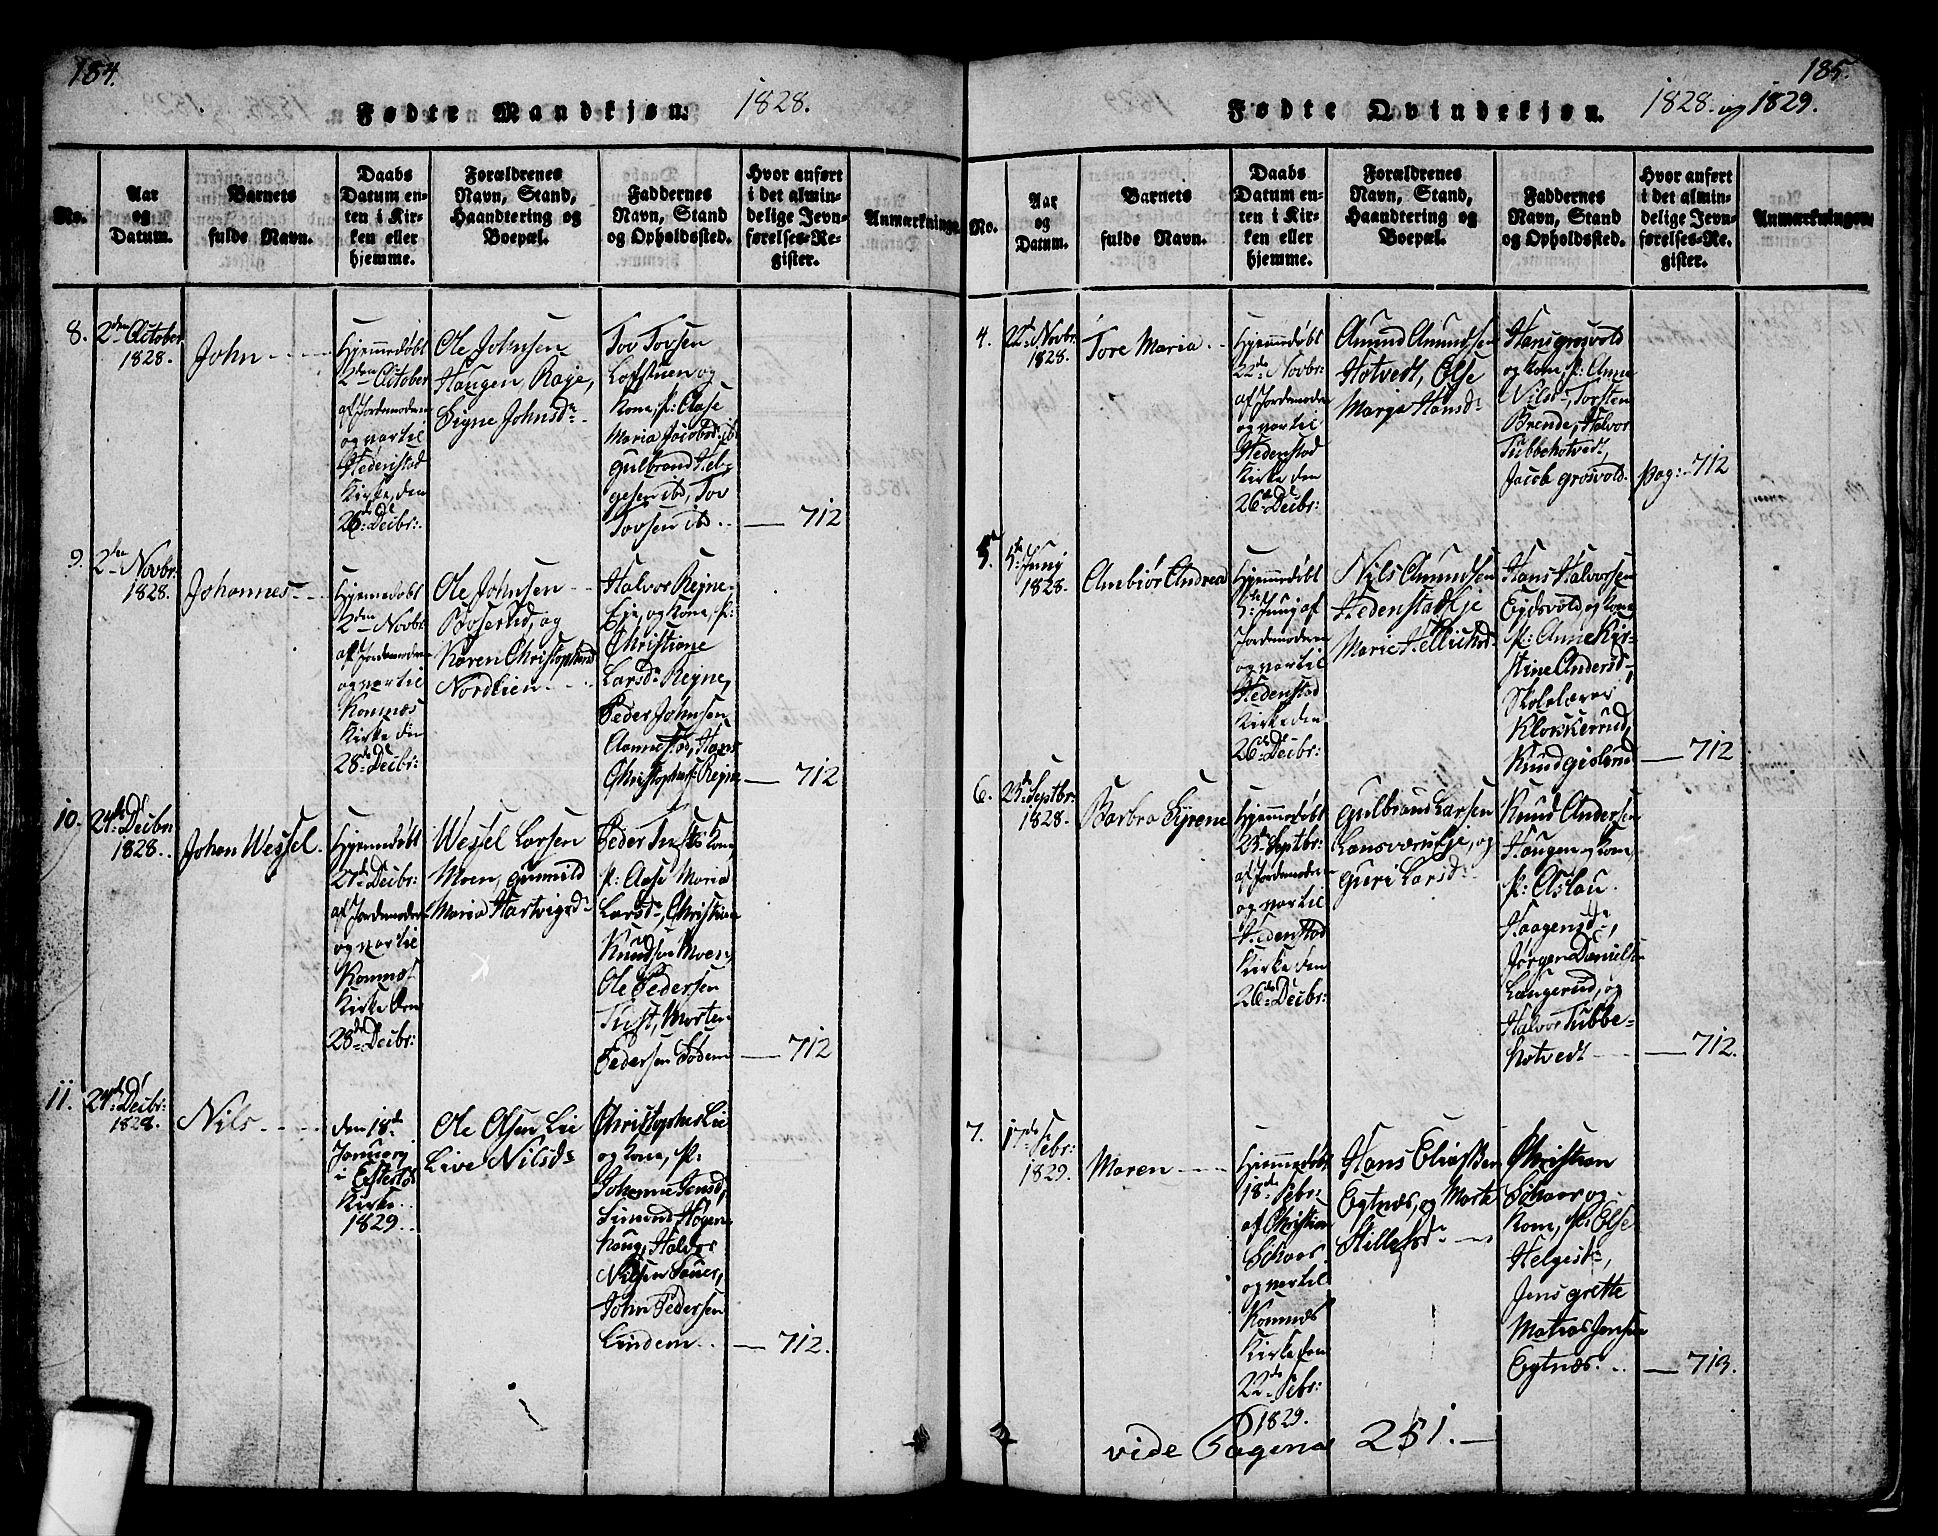 184.
Fødte Mandkjøn. 1828.
No.
Aar
og
Datum.
Barnets
fulde Navn.
Daabs
Datum en-
ten i Kir-
ken eller
hjemme.
Forældrenes
Navn, Stand,
Haandtering og
Boepæl.
Faddernes
Navn, Stand
og Opholdssted.
Hvor anført
i det almin-
delige Jevn-
førelses-Re-
gister.
Anmærkninge
8.
2den October
1828.
John
Hjemmedøbt
2den October
af Jordemoderen
og var til
Hedenstad
Kirke, den
26de Decbr:
Ole Johnsen
Haugen, Raje,
Signe Johnsd:
Tov Tovsen
Lofstuen og
Kone, p: Aase
Maria Jacobsd: ib
Gulbrand Hel-
gesen ibd, Tov
Tovsen ibd.
712
9.
2den Novbr:
1828.
Johannes
Hjemmedøbt
2den Novbr:
af Jordemoderen
og var til
Komnæs
Kirke den
28de Decbr:
Ole Johnsen
Boserud, og
Karen Christophersd
Nordlien
Halvor Rejne
Eje, og Kone, p:
Christiane
Larsd: Rejne,
Peder Johnsen
Aamestad, Hans
Christophers: Rejne
712
10.
24de Decbr
1828.
Johan Wessel.
Hjemmedøbt
27de Decbr:
af Jordemoderen
og var til
Komnes
Kirke den
28de Decbr:
Wessel Larsen
Moen, Gunnild
Maria Hartvigsd:
Peder Tufts Kone,
p: Aase Maria
Larsd:, Christian
Knudsen Moen,
Ole Pedersen
Tuft, Morten
Pedersen Foden
712
11.
24de Decbr:
1828.
Nils
den 18de
Januarij
i Efteløt
Kirke.
1829.
Ole Olsen Lie
Live Nilsd:
Christopher Lie
og Kone, p:
Johanne Jensd,
Simend Høgen
Houg, Halvor
Nilsen Sauer,
John Pedersen
Lindem
712.
185.
Fødte Qvindekjøn. 1828. og 1829.
No.
Aar
og
Datum.
Barnets
fulde Navn.
Daabs
Datum en-
ten i Kir-
ken eller
hjemme.
Forældrenes
Navn, Stand,
Haandtering og
Boepæl.
Faddernes
Navn, Stand
og Opholdssted.
Hvor anført
i det almin-
delige Jevn-
førelses-Re.
gister.
Anmærkningen
4.
22de Novbr:
1828.
Tore Maria
Hjemmedøbt
22de Novbr:
af Jordemoderen
og var til
Hedenstad
Kirke den
26de Decbr:
Amund Amundsen
Hotvedt, Else
Marja Hansd:
Hans Grosvold
og Kone, p: Anne
Nilsd:, Torsten
Brende, Halvor
Tubbehotvedt,
Jacob Grosvold.
pag: 712
5.
5te Junij
1828.
Anbiør Andrea
Hjemmedøbt
5te Junij af
Jordemoderen
og var til
Hedenstad
Kirke den
26de Decbr:
Nils Amundsen
Hedenstad Eje
Marie Hellichsd:
Hans Halvorsen
Ejdsvold og Kone
p: Anne Kir-
stine Andersd:,
Skolelærer
Klokkerud,
Knud Gisland
712
6.
25de Septbr:
1828.
Barbra Syrene
Hjemmedøbt
25de Septbr:
af Jordemoderen
og var til
Hedenstad
Kirke den
26de Decbr:
Gulbrand Larsen
Lansværk Eje, og
Guri Larsd:
Knud Andersen
Haugen og Kone,
p: Aslau
Haagensd:,
Jørgen Daniels-
Langerud, og
Halvor Tubbe-
hotvedt
712.
7.
17de Febr:
1829.
Maren
Hjemmedøbt
18de Febr:
af Christian
Schaar
og var til
Komnæs
Kirke den
22de Febr:
1829.
Hans Eliassen
Egtnæs, og Marte
Hillefsd:
Christian
Schaar og
Kone, p: Else
Helgesd:,
Jens Grette
Matias Jensen
Egtnæs.
713.
vide Pagena 251.